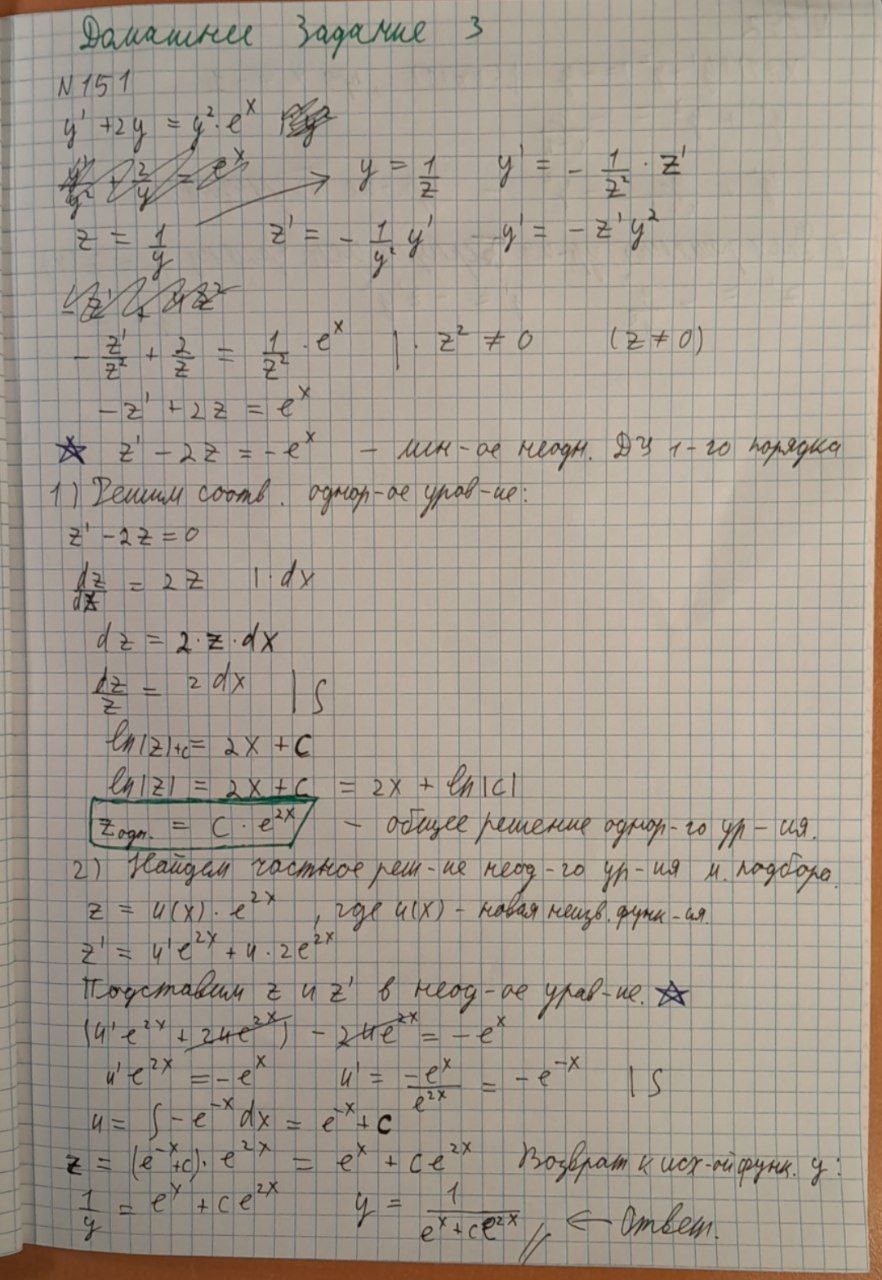 Домашнее Задание 3
N151
y' + 2y = y² · e^x
y = 1/z   y' = - 1/z² · z'
z = 1/y   z' = - 1/y² y'   y' = - z' y²
- z'/z² + 2/z = 1/z² · e^x   | · z² ≠ 0   (z ≠ 0)
- z' + 2z = e^x
☆ z' - 2z = - e^x - лин-ое неодн. ДУ 1-го порядка
1) Решим соотв. однор-ое урав-ие:
z' - 2z = 0
dz/dx = 2z   | · dx
dz = 2 · z · dx
dz/z = 2dx   | ∫
ln|z|+c = 2x + C
ln|z| = 2x + C = 2x + ln|C|
z одн. = C · e^2x - общее решение однор-го ур-ия.
2) Найдем частное реш-ие неод-го ур-ия м. подбора.
z = u(x) · e^2x, где u(x) - новая неизв. функ-ия.
z' = u'e^2x + u · 2e^2x
Подставим z и z' в неод-ое урав-ие. ☆
(u'e^2x + 2ue^2x) - 2ue^2x = - e^x
u'e^2x = - e^x   u' = -e^x/e^2x = - e^-x   | ∫
u = ∫ - e^-x dx = e^-x + C
z = (e^-x + c) · e^2x = e^x + Ce^2x   Возврат к исх-ой функ. y:
1/y = e^x + Ce^2x   y = 1/(e^x + Ce^2x) // ← Ответ.